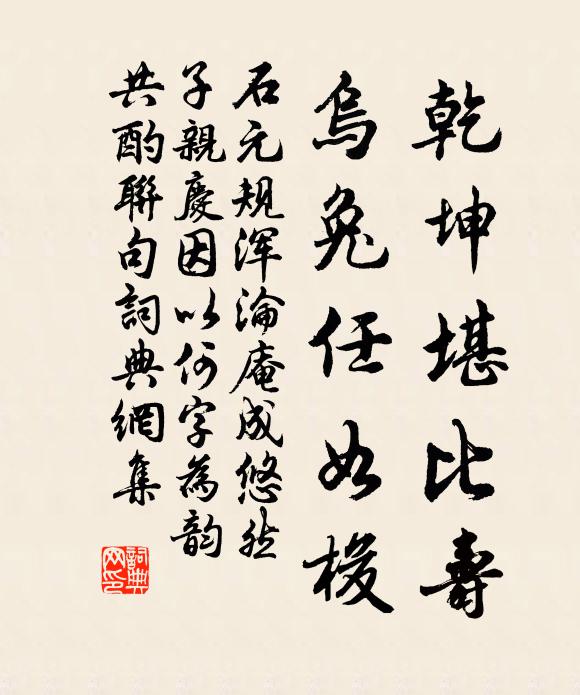 乾坤堪比壽
烏兔任如梭
石元規渾淪庵成悠然
子親慶因以何字為韵
共酌聯句詞典網集
詞典網印